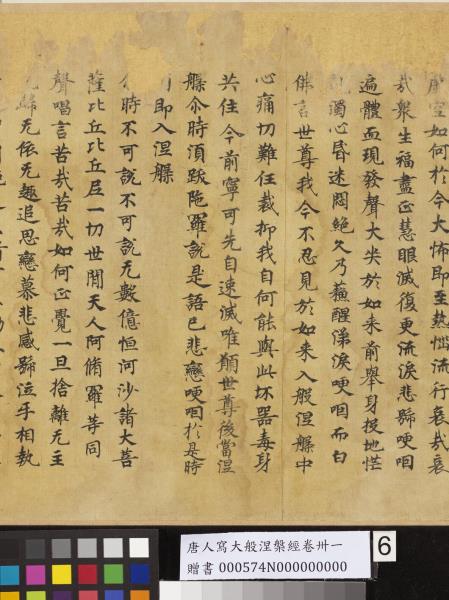 空如何於今大怖即至熱惱流行哀哉哀
哉衆生福盡正慧眼滅復更流淚悲號哽咽
遍體血現發聲大哭於如来前舉身投地
濁心昬迷悶絕久乃蘓醒涕淚哽咽而白
佛言世尊我今不忍見於如来入般涅槃中
心痛切難任裁抑我自何能與此坏器毒身
共住今前寧可先自速滅唯願世尊後當涅
槃尒時須跋陁羅說是語已悲戀哽咽於是時
即入涅槃
尒時不可說不可說无數億恒河沙諸大菩
薩比丘比丘尼一切世閒天人阿脩羅等同
聲唱言苦哉苦哉如何正覺一旦捨離无主
歸无依无趣追思戀慕悲感號泣手相執
唐人寫大般涅槃經卷卅一
贈書 000574N000000000
6